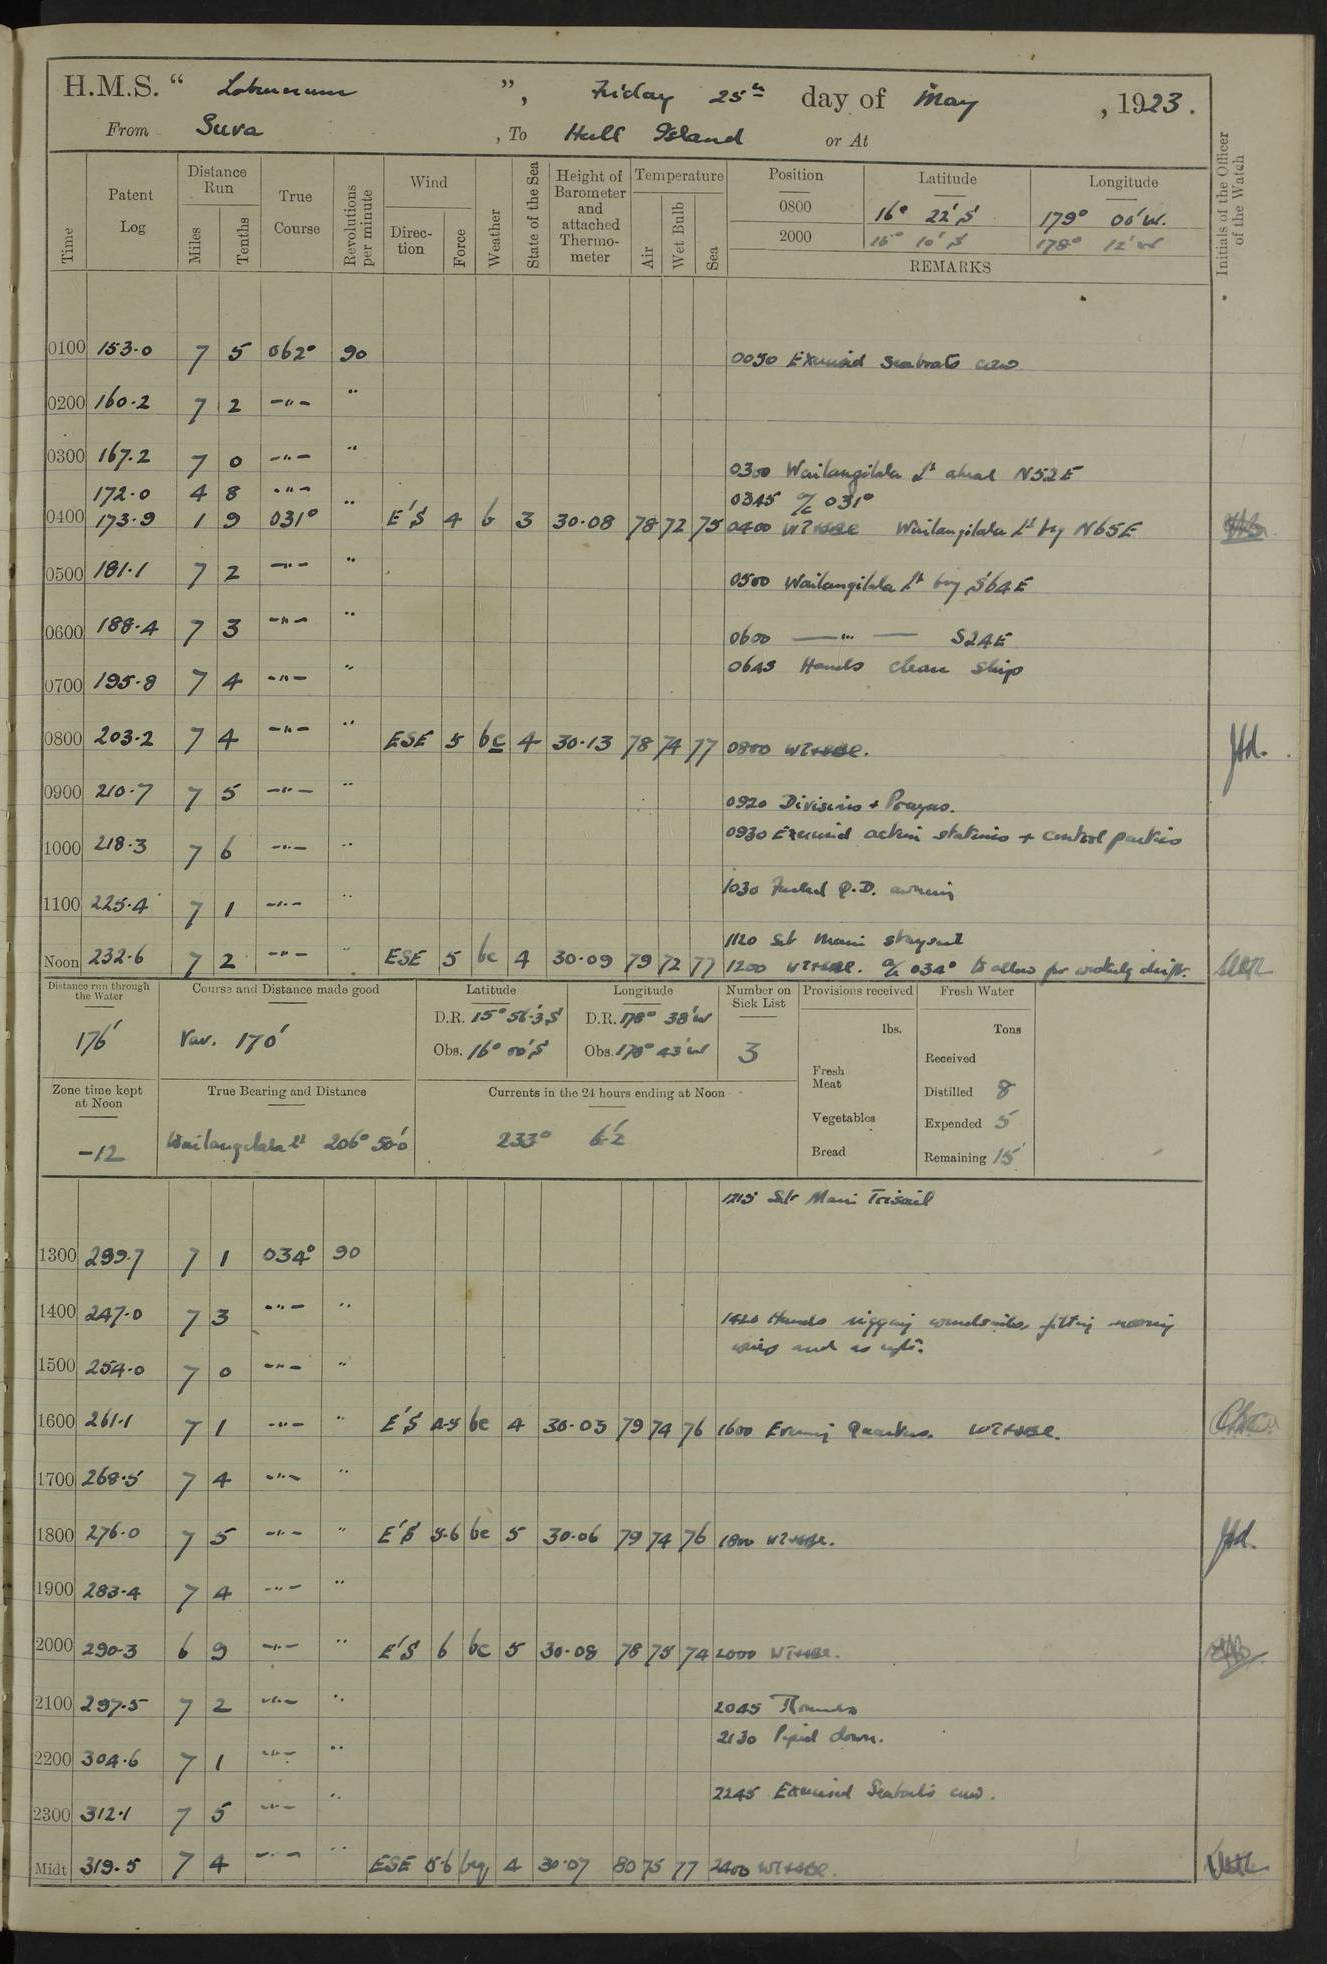 H.M.S. “ Laburnum ”, Friday 25th day of May , 1923.
From Suva , To Hull Island or At
Time Patent Log Distance Run Miles Tenths True Course Revolutions per minute Wind Direction Force Weather State of the Sea Height of Barometer and attached Thermometer Temperature Air Wet Bulb Sea Position Latitude Longitude Initials of the Officer of the Watch
0800 16° 22' S 179° 06' W.
2000 15° 10' S 178° 12' W
REMARKS
0100 153.0 7 5 062° 90 0050 Exercised Seaboats crew
0200 160.2 7 2 -"- "
0300 167.2 7 0 -"- " 0300 Wailangilala Lt ahead N52E
172.0 4 8 -"- " 0345 a/c 031°
0400 173.9 1 9 031° E'S 4 b 3 30.08 78 72 75 0400 Wailangilala Lt brg N65E
0500 181.1 7 2 -"- " 0500 Wailangilala Lt brg S64E
0600 188.4 7 3 -"- " 0600 -"- S24E
0645 Hands clean Ship
0700 195.8 7 4 -"- "
0800 203.2 7 4 -"- " ESE 5 bc 4 30.13 78 74 77 0800
0900 210.7 7 5 -"- " 0920 Divisions + Prayers.
0930 Exercised action stations + control parties
1000 218.3 7 6 -"- "
1030 Furled Q.D. awning
1100 225.4 7 1 -"- "
1120 Set Main staysail
Noon 232.6 7 2 -"- " ESE 5 bc 4 30.09 79 72 77 1200 a/c 034° to allow for westerly drift.
Distance run through the Water Course and Distance made good Latitude Longitude Number on Sick List Provisions received Fresh Water
176' Var. 170' D.R. 15° 56'.3 S D.R. 178° 38' W 3 lbs. Tons
Obs. 16° 00' S Obs. 178° 43' W Fresh Meat Received
Zone time kept at Noon True Bearing and Distance Currents in the 24 hours ending at Noon Distilled 8
Vegetables Expended 5
-12 Wailangilala Lt 206° 50'.0 233° 6'.2 Bread Remaining 15
1215 Set Main Trisail
1300 239.7 7 1 034° 90
1400 247.0 7 3 -"- " 1420 Hands rigging windsails, fitting
and as reqte.
1500 254.0 7 0 -"- "
1600 261.1 7 1 -"- " E'S 4-5 bc 4 30.03 79 74 76 1600 Evening Quarters.
1700 268.5 7 4 -"- "
1800 276.0 7 5 -"- " E'S 5-6 bc 5 30.06 79 74 76 1800
1900 283.4 7 4 -"- "
2000 290.3 6 9 -"- " E'S 6 bc 5 30.08 78 75 74 2000
2100 297.5 7 2 -"- " 2045 Rounds
2130 Piped down.
2200 304.6 7 1 -"- "
2245 Exercised Seaboats crew.
2300 312.1 7 5 -"- "
Midt 319.5 7 4 -"- " ESE 5.6 bcq 4 30.07 80 75 77 2400